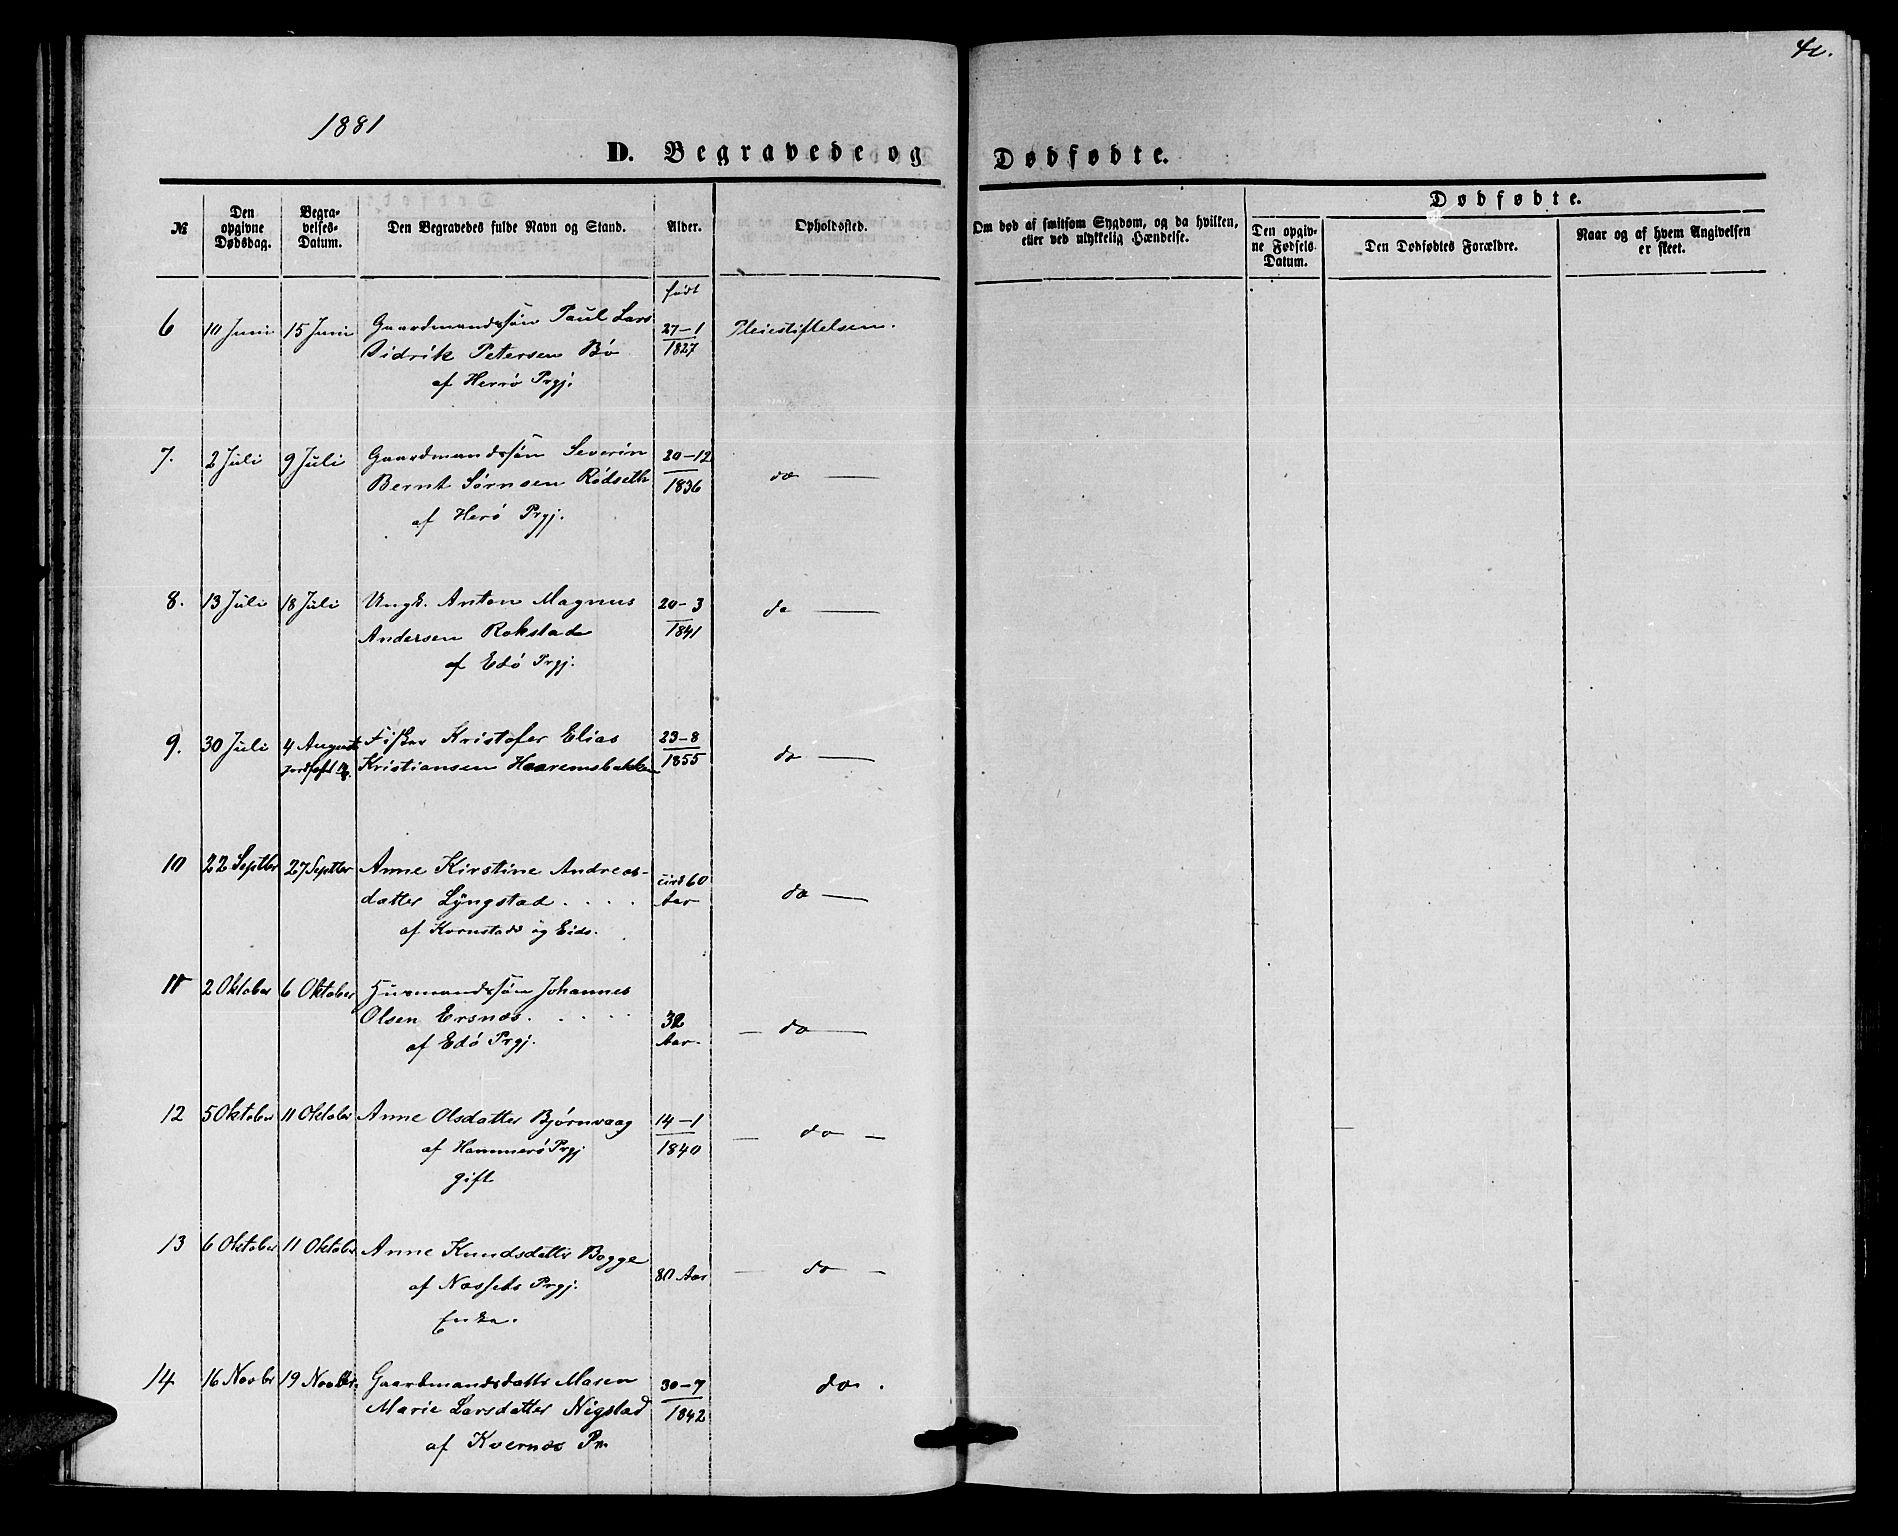 41.
1881
D. Begravede og Dødfødte.
№
Den opgivne Dødsdag.
Begravelses-Datum.
Den Begravedes fulde Navn og Stand.
Alder.
Opholdssted.
Om død af smitsom Sygdom, og da hvilken, eller ved ulykkelig Hændelse.
Dødfødte.
Den opgivne Fødsels Datum.
Den Dødfødtes Forældre.
Naar og af hvem Angivelsen er skeet.
født
6 10 Juni 15 Juni Gaardmandssøn Paul Lars 27-1 Pleiestiftelsen.
Didrik Petersen Bö 1827
af Herrö Prgj.
7. 2 Juli 9 Juli Gaardmandssøn Severin 20-12 do —
Bernt Sörnsen Rödseth 1836
af Herö Prgj.
8. 13 Juli 18 Juli Ungk. Anton Magnus 20-3 do —
Andersen Rokstad 1841
af Edö Prgj.
9. 30 Juli 4 August Fisker Kristofer Elias 23-8 do —
Kristiansen Haaremsbakken 1855
10 22 Septbr 27 Septbr Anne Kirstine Andreas- 60 do —
datter Lyngstad . . . . Aar
af Kornstads og Eids.
11 2 Oktober 6 Oktober Husmandssøn Johannes
Olsen Ersnæs. . . . . 32 — do —
af Edö Prgj. Aar.
12 5 Oktober 11 Oktober Anne Olsdatter Björnvaag 14-1 — do —
af Hammerö Prgj 1840
gift
13 6 Oktober 11 Oktober Anne Knudsdatter Bogge 80 Aar — do —
af Næssets Prgj.
Enke.
14 16 Novbr 19 Novbr. Gaardmandsdatter Maren 30-7 do .
Marie Larsdatter Nigstad 1842
af Kvernæs Pr.